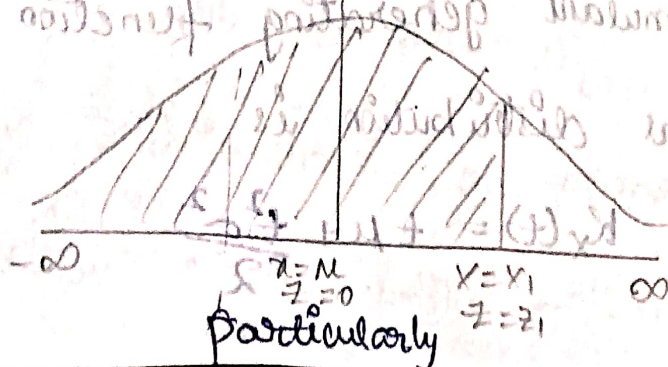 -∞ x=μ X=X₁ ∞
z=0 z=z₁
particularly